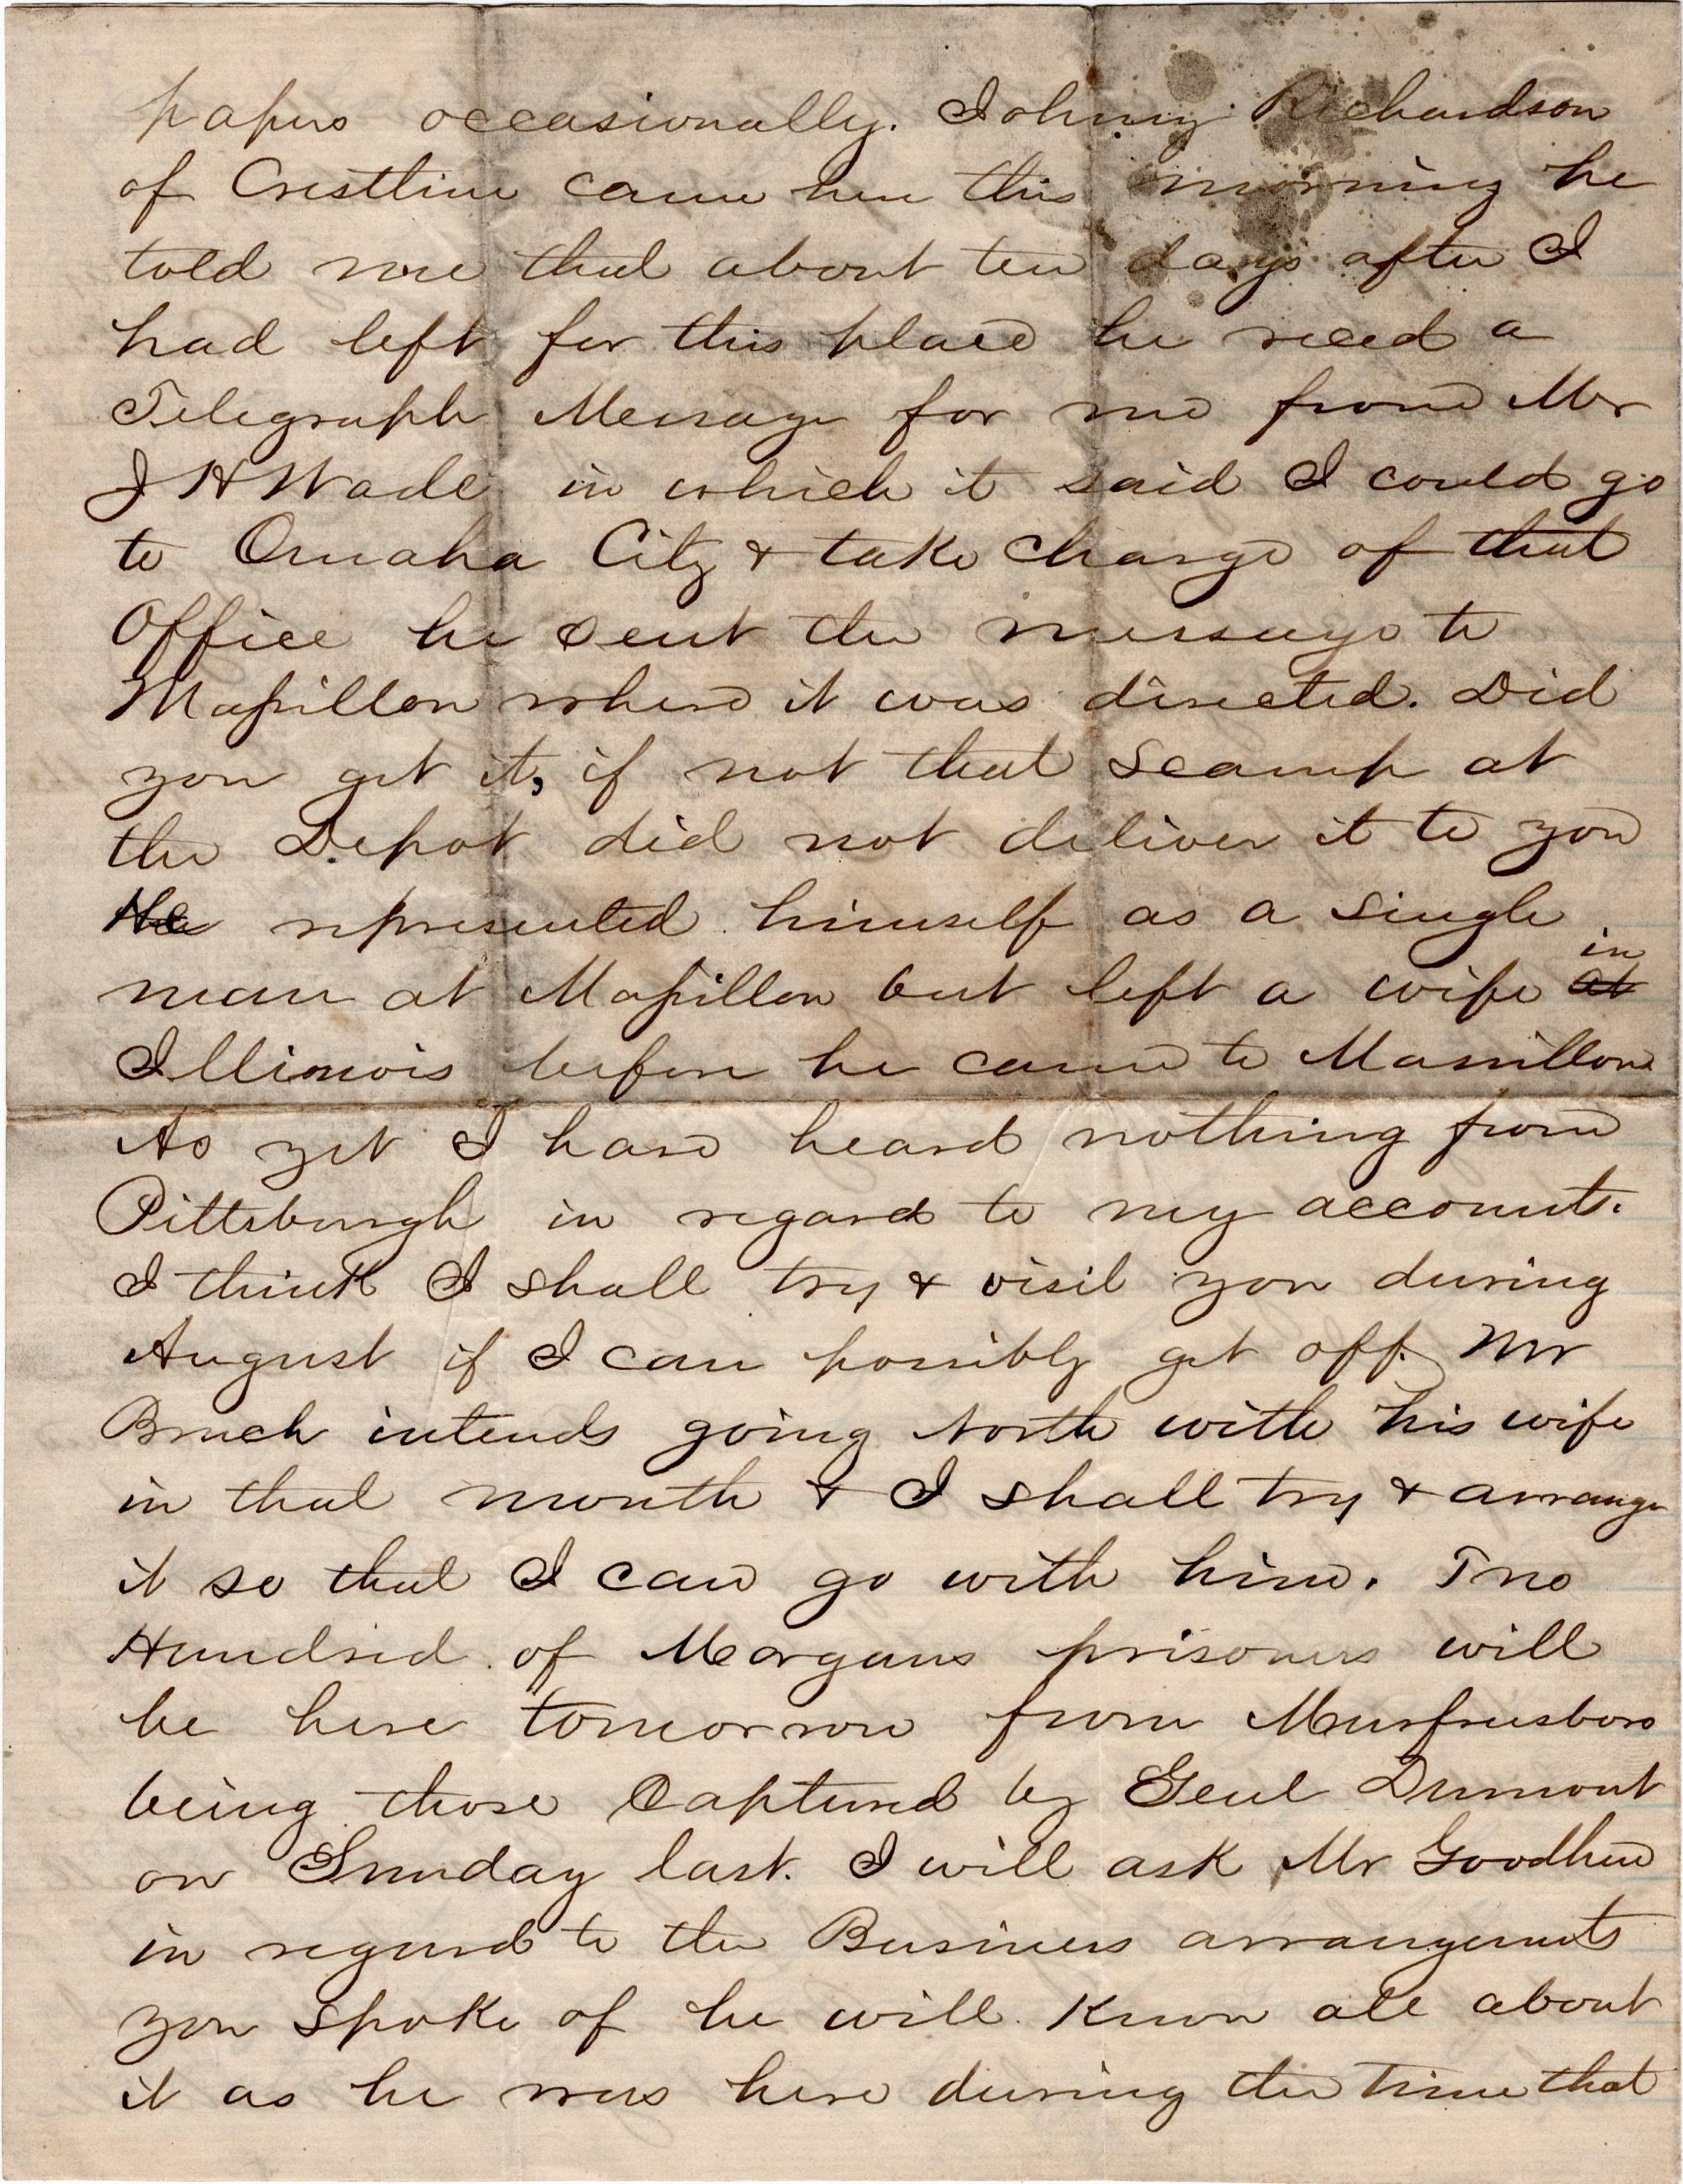 papers occasionally. Johnny Richardson
of Crestline came here this morning he
told me that about ten days after I
had left for this place he recd a
Telegraph Message for me from Mr
J H Wade in which it said I could go
to Omaha City & take charge of that
Office he sent the message to
Massillon where it was directed. Did
you get it, if not that Scamp at
the Depot did not deliver it to you
He represented himself as a single
man at Massillon but left a wife in at
Illinois before he came to Massillon
As yet I have heard nothing from
Pittsburgh in regard to my accounts.
I think I shall try & visit you during
August if I can possibly get off. Mr
Bruch intends going North with his wife
in that month & I shall try & arrange
it so that I can go with him. Two
Hundred of Morgans prisoners will
be here tomorrow from Murfreesboro
being those Captured by Genl Dumont
on Sunday last. I will ask Mr Goodhue
in regard to the Business arrangements
you spoke of he will know all about
it as he was here during the time that